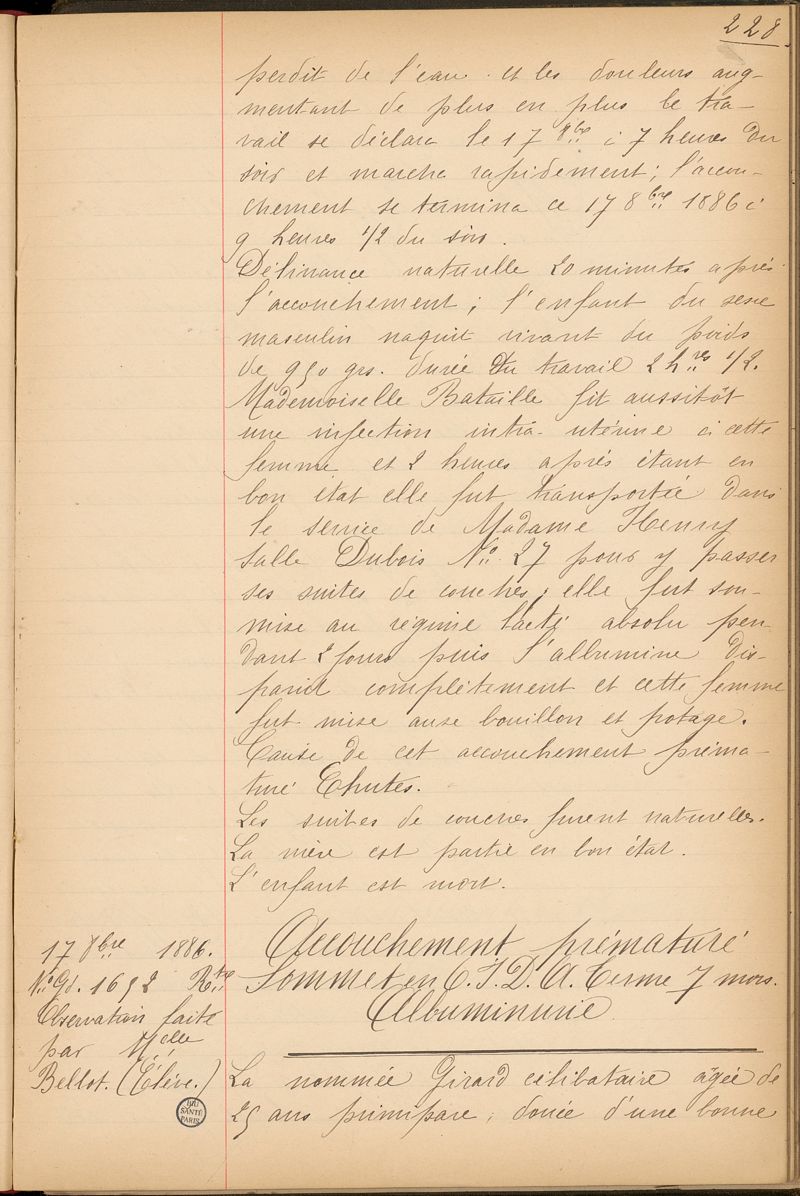 228.
perdit de l'eau et les douleurs aug-
mentant de plus en plus le tra-
vail se déclara le 17 8bre à 7 heures du
soir et marcha rapidement; l'accou-
chement se termina ce 17 8bre 1886 à
9 heures 1/2 du soir.
Délivrance naturelle 20 minutes après
l'accouchement; l'enfant du sexe
masculin naquit vivant du poids
de 950 grs. durée du travail 2 hres 1/2.
Mademoiselle Bataille fit aussitôt
une injection intra-utérine à cette
femme et 2 heures après étant en
bon état elle fut transportée dans
le service de Madame Henry
salle Dubois No 27 pour y passer
ses suites de couches; elle fut sou-
mise au régime lacté absolu pen
dant 2 jours puis l'albumine dis-
parut complètement et cette femme
fut mise aux bouillon et potage.
Cause de cet accouchement préma-
turé Chutes.
Les suites de couches furent naturelles.
La mère est partie en bon état.
L'enfant est mort.
17 8bre 1886.
No Gd. 1652 Rtre
Observation faite
par Melle
Bellot. (Élève.)
Accouchement prématuré
Sommet en O.I.D.A. Terme 7 mois.
Albuminurie
La nommée Girard célibataire âgée de
25 ans primipare, douée d'une bonne
BIU
SANTÉ
PARIS